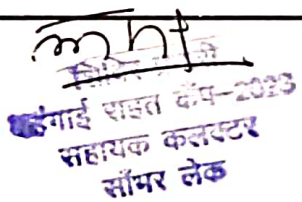 महंगाई राहत कैंप-2023
सहायक कलक्टर
साँभर लेक